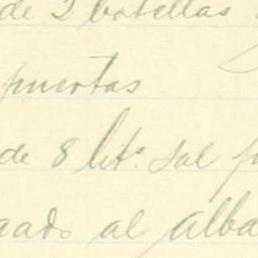 de 2 botellas
puertas
de 8 lit.s sal
gado al alba